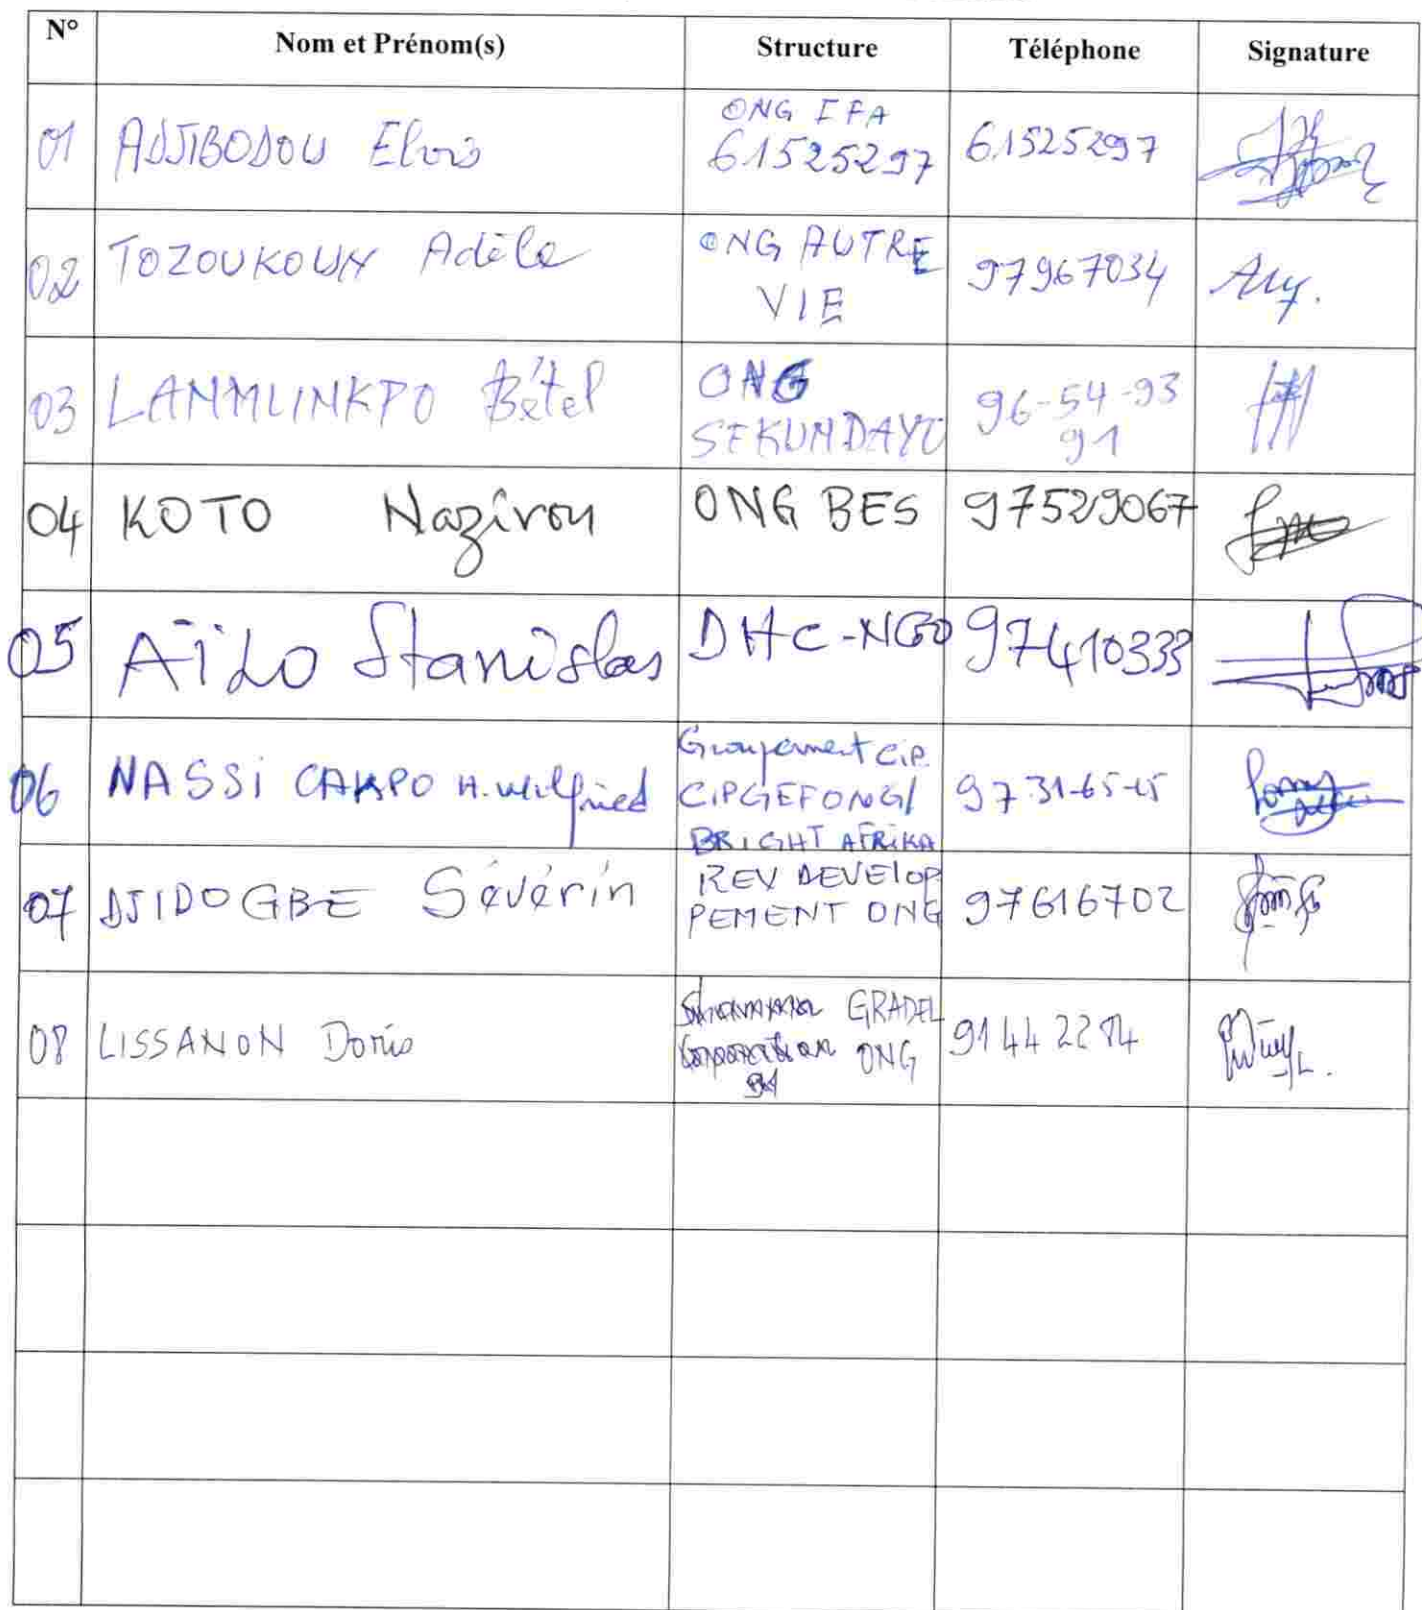 N° Nom et Prénom(s) Structure Téléphone Signature
01 ADJIBODOU Elvis ONG IFA 61525297 61525297
02 TOZOUKOUN Adèle ONG AUTRE VIE 97967034
03 LANMLINKPO Bétel ONG SEKUNDAYO 96-54-93 91
04 KOTO Nazirou ONG BES 97529067
05 AÏLO Stanislas DHC-NGO 97410333
06 NASSI CAKPO H. Wilfried Groupement CIP CIPGEFONG/ BRIGHT AFRIKA 97-31-65-15
07 DJIDOGBE Sévérin REV DEVELOP PEMENT ONG 97616702
08 LISSANON Doris GRADEL ONG 91442284